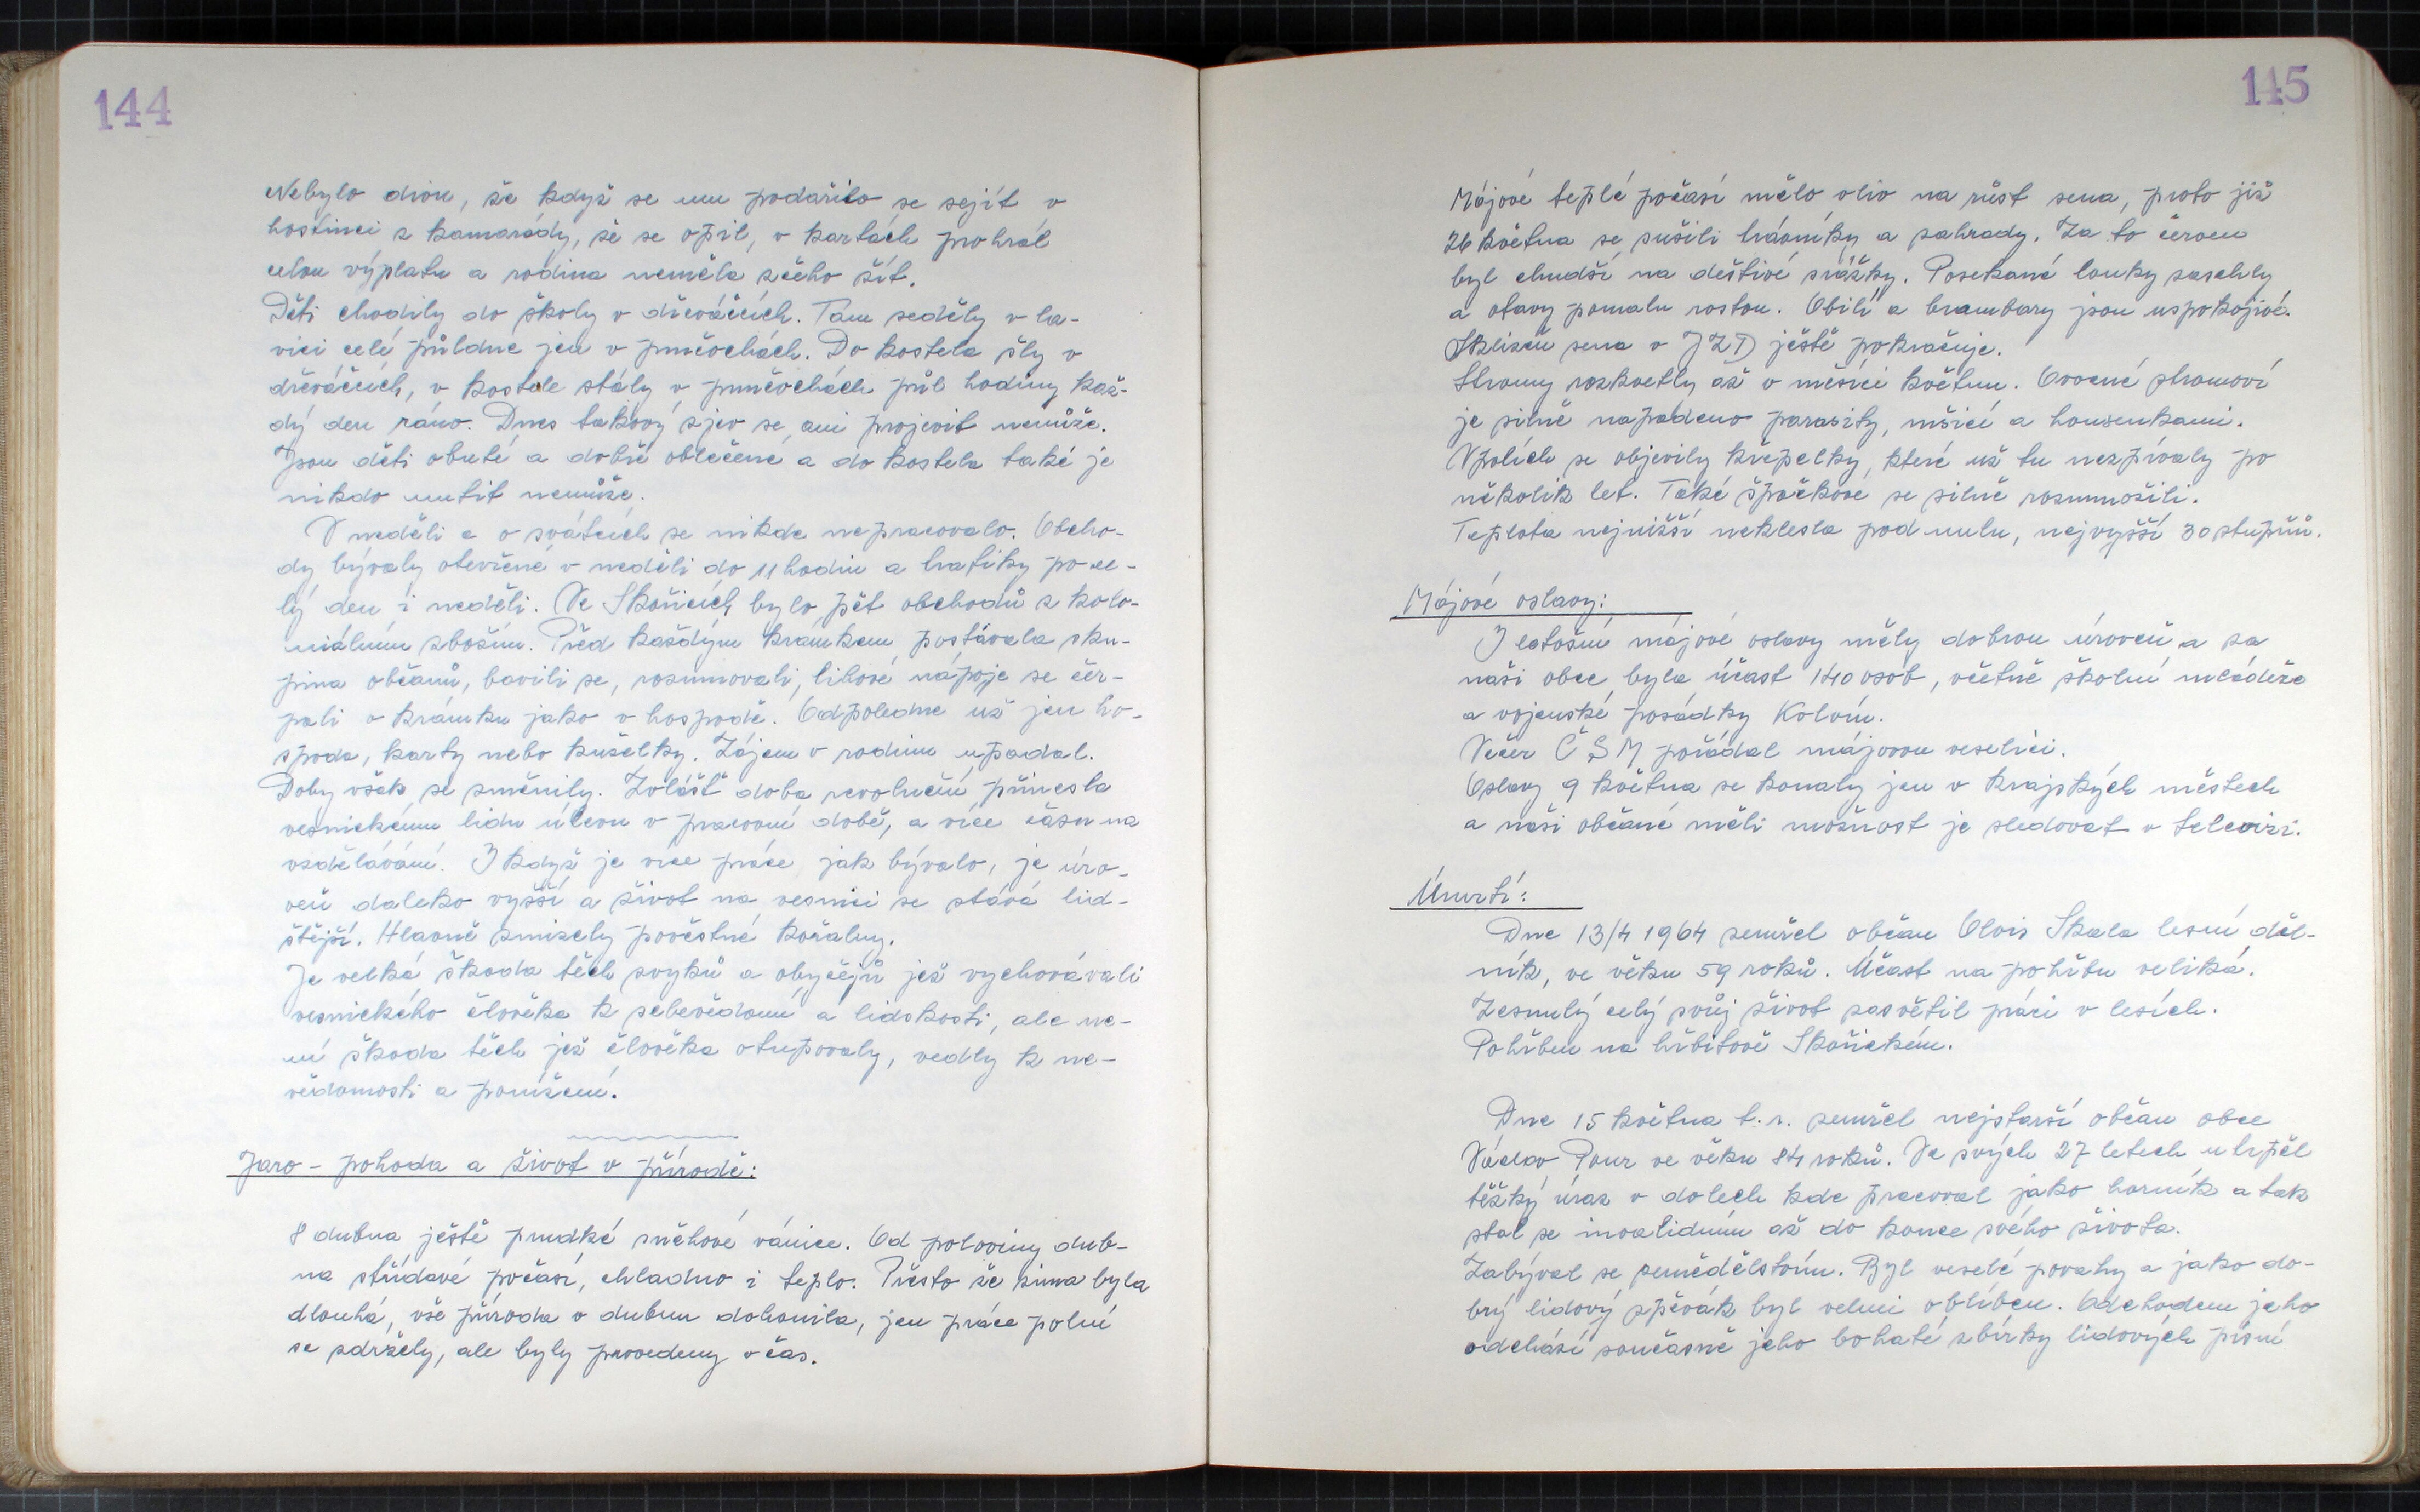 144
Nebylo divu, že když se mu podařilo se sejít v
hostinci z kamarády, že se opil, v kartách prohrál
celou výplatu a rodina neměla z čeho žít.
Děti chodily do školy v dřeváčcích. Tam seděly v la-
vici celé půldne jen v punčochách. Do kostela šly v
dřeváčcích, v kostele stály v punčochách půl hodiny kaž-
dý den ráno. Dnes takový zjev se ani projevit nemůže.
Jsou děti obuté a dobře oblečené a do kostela také je
nikdo nutit nemůže.
V neděli a o svátcích se nikde nepracovalo. Obcho-
dy bývaly otevřené v neděli do 11 hodin a trafiky po ce-
lý den i neděli. Ve Skořicích bylo pět obchodů z kolo-
niálním zbožím. Před každým krámkem postávala sku-
pina občanů, bavili se, rozumovali, lihové nápoje se čer-
pali v krámku jako v hospodě. Odpoledne už jen ho-
spoda, karty nebo kuželky. Zájem v rodinu upadal.
Doby však se změnily. Zvlášť doba revoluční přinesla
vesnickému lidu úlevu v pracovní době, a více času na
vzdělávání. I když je více práce jak bývalo, je úro-
veň daleko vyšší a život na vesnici se stává lid-
štější. Hlavně zmizely pověstné kořalny.
Je velká škoda těch zvyků a obyčejů jež vychovávali
vesnického člověka k sebevědomí a lidskosti, ale ne-
ní škoda těch jež člověka otupovaly, vedly k ne-
vědomosti a ponížení.
Jaro - pohoda a život v přírodě:
8 dubna ještě prudké sněhové vánice. Od poloviny dub-
na střídavé počasí, chladno i teplo. Přesto že zima byla
dlouhá, vše příroda v dubnu dohonila, jen práce polní
se zdržely, ale byly provedeny včas.
145
Májové teplé počasí mělo vliv na růst sena, proto již
26 května se sušili trávníky a zahrady. Za to červen
byl chudší na deštivé srážky. Posekané louky zaschly
a otavy pomalu rostou. Obilí a brambory jsou uspokojivé.
Sklizeň sena v JZD ještě pokračuje.
Stromy rozkvetly až v měsíci květnu. Ovocné stromoví
je silně napadeno parasity, mšicí a housenkami.
V polích se objevily křepelky, které už tu nezpívaly po
několik let. Také špačkové se silně rozmnožili.
Teplota nejnižší neklesla pod nulu, nejvyšší 30 stupňů.
Májové oslavy:
I letošní májové oslavy měly dobrou úroveň a za
naši obec byla účast 140 osob, včetně školní mládeže
a vojenské posádky Kolvín.
Večer ČSM pořádal májovou veselici.
Oslavy 9 května se konaly jen v krajských městech
a naši občané měli možnost je sledovat v televizi.
Úmrtí:
Dne 13/4 1964 zemřel občan Alois Skala lesní děl-
ník, ve věku 59 roků. Účast na pohřbu veliká.
Zesnulý celý svůj život zasvětil práci v lesích.
Pohřben na hřbitově Skořickém.
Dne 15 května t.r. zemřel nejstarší občan obce
Václav Pour ve věku 84 roků. Ve svých 27 letech utrpěl
těžký úraz v dolech kde pracoval jako horník a tak
stal se invalidním až do konce svého života.
Zabýval se zemědělstvím. Byl veselé povahy a jako do-
brý lidový zpěvák byl velmi oblíben. Odchodem jeho
odchází současně jeho bohaté sbírky lidových písní